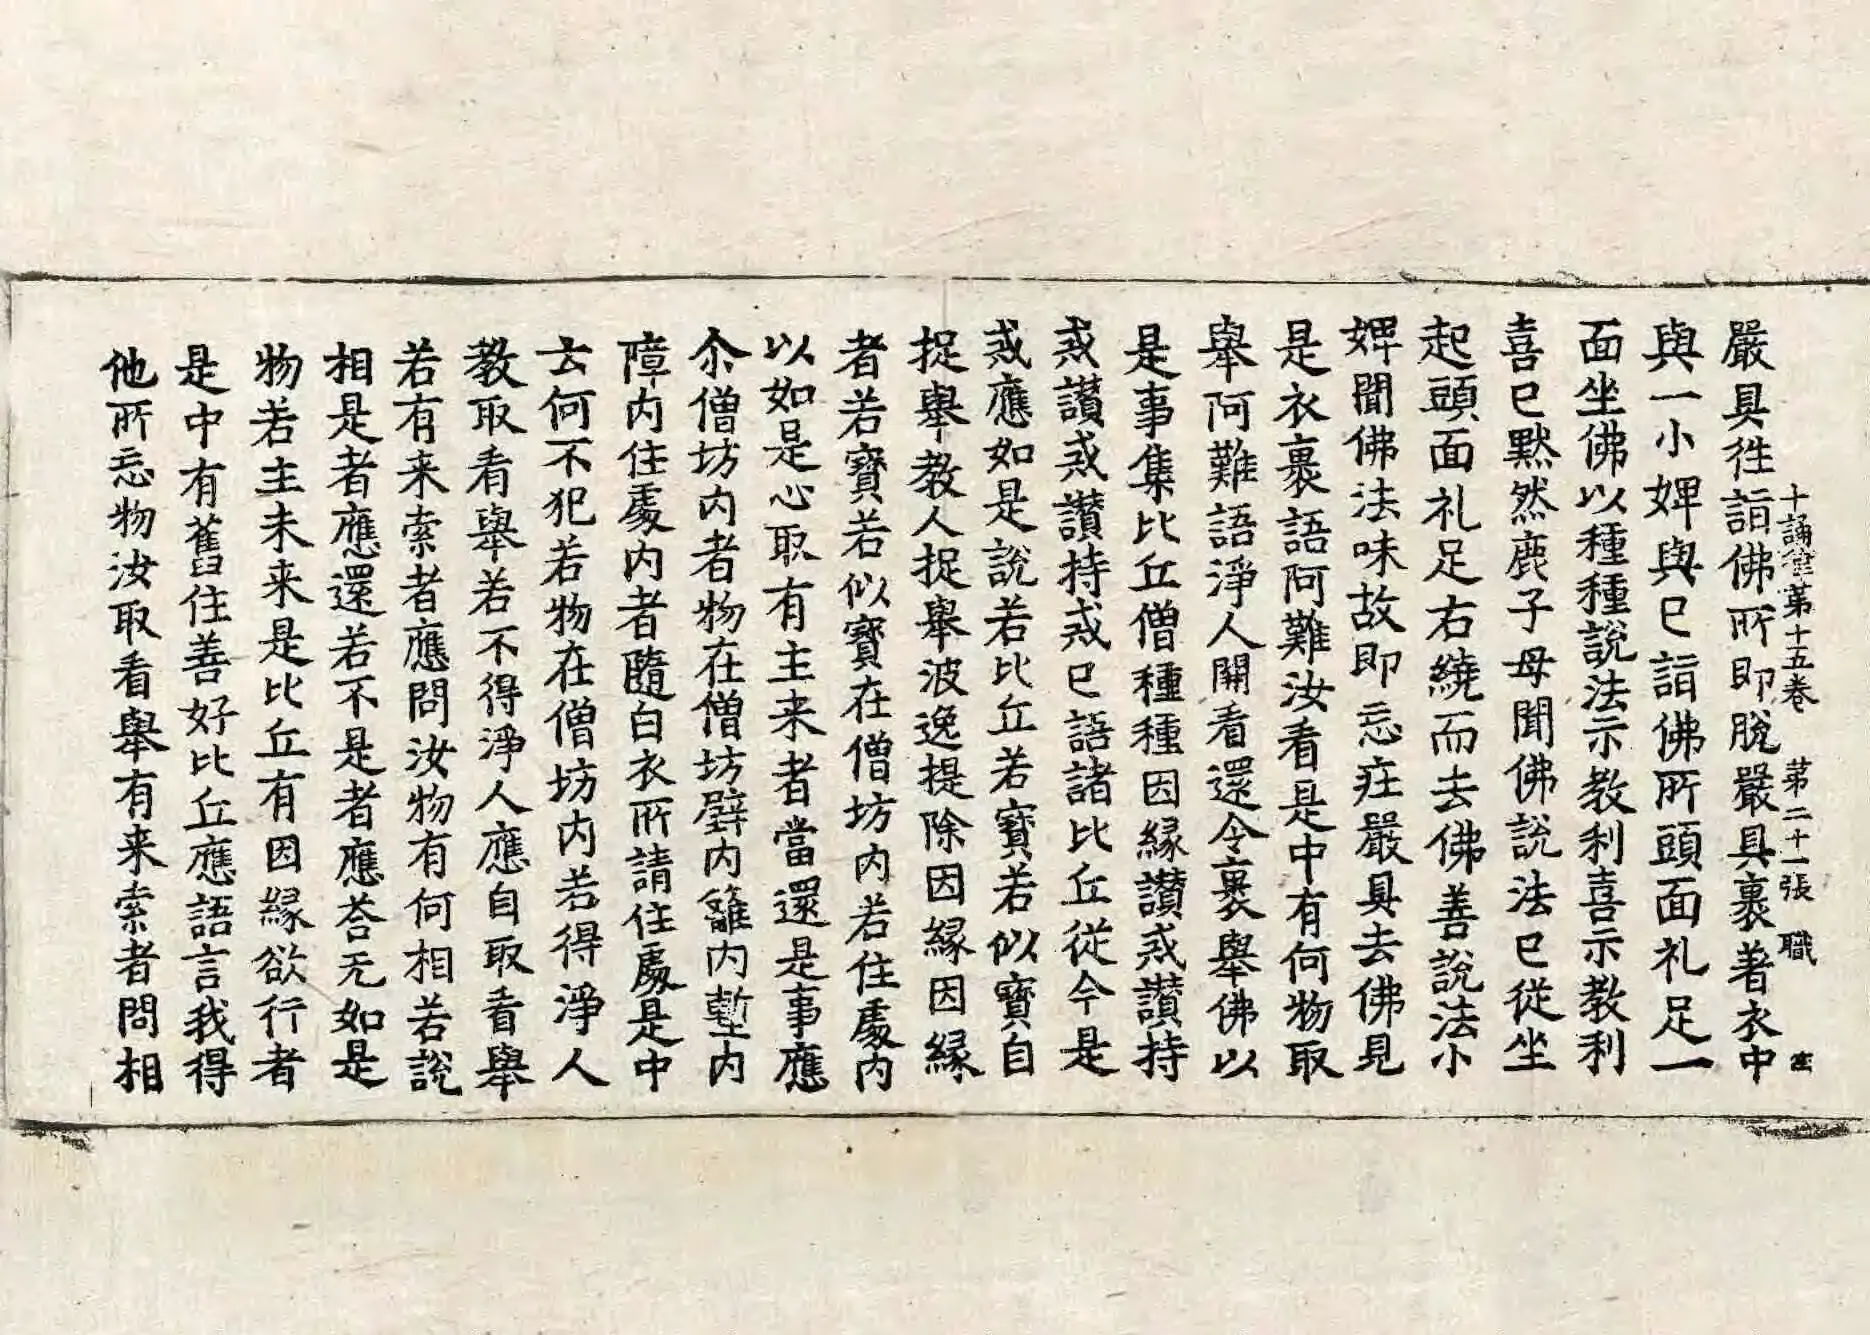 十誦律第十五卷 第二十一張 職
嚴具徃詣佛所即脫嚴具裹著衣中
與一小婢與已詣佛所頭面礼足一
面坐佛以種種說法示教利喜示教利
喜已默然鹿子母聞佛說法已從坐
起頭面礼足右繞而去佛善說法小
婢聞佛法味故即忘在嚴具去佛見
是衣裹語阿難汝看是中有何物取
舉阿難語淨人開看還令裹舉佛以
是事集比丘僧種種因緣讃戒讃持
戒讃戒讃持戒已語諸比丘從今是
戒應如是說若比丘若寳若似寳自
捉舉教人捉舉波逸提除因緣因緣
者若寳若似寳在僧坊內若住處內
以如是心取有主来者當還是事應
尒僧坊內者物在僧坊壁內籬內塹內
障內住處內者隨白衣所請住處是中
云何不犯若物在僧坊內若得淨人
教取看舉若不得淨人應自取看舉
若有来索者應問汝物有何相若說
相是者應還若不是者應荅无如是
物若主未来是比丘有因緣欲行者
是中有舊住善好比丘應語言我得
他所忘物汝取看舉有来索者問相